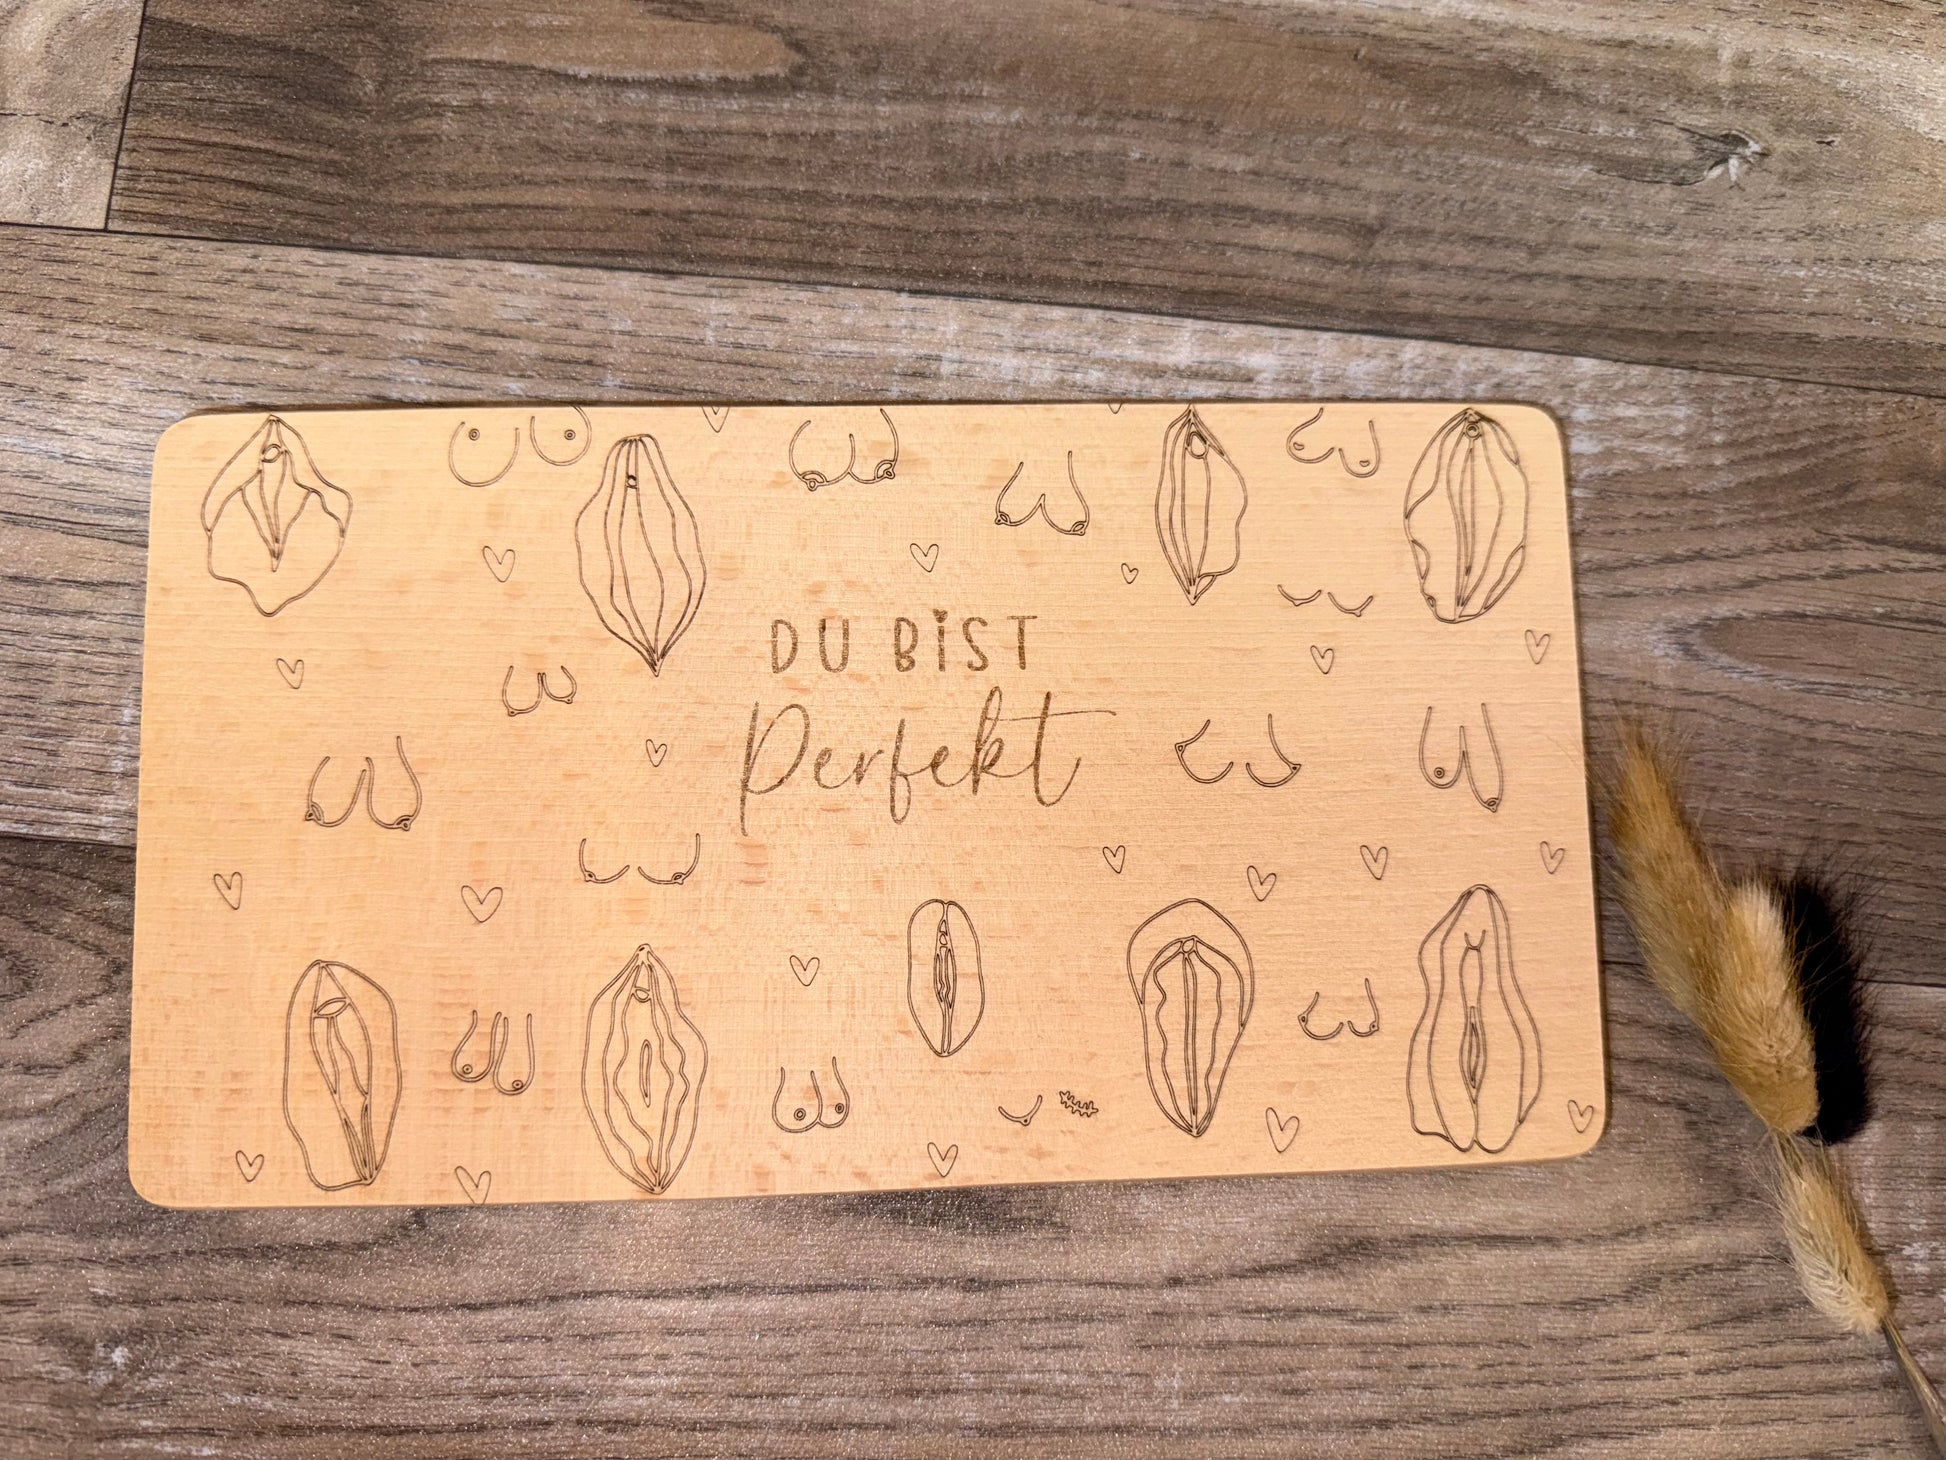 DU BIST
Perfekt